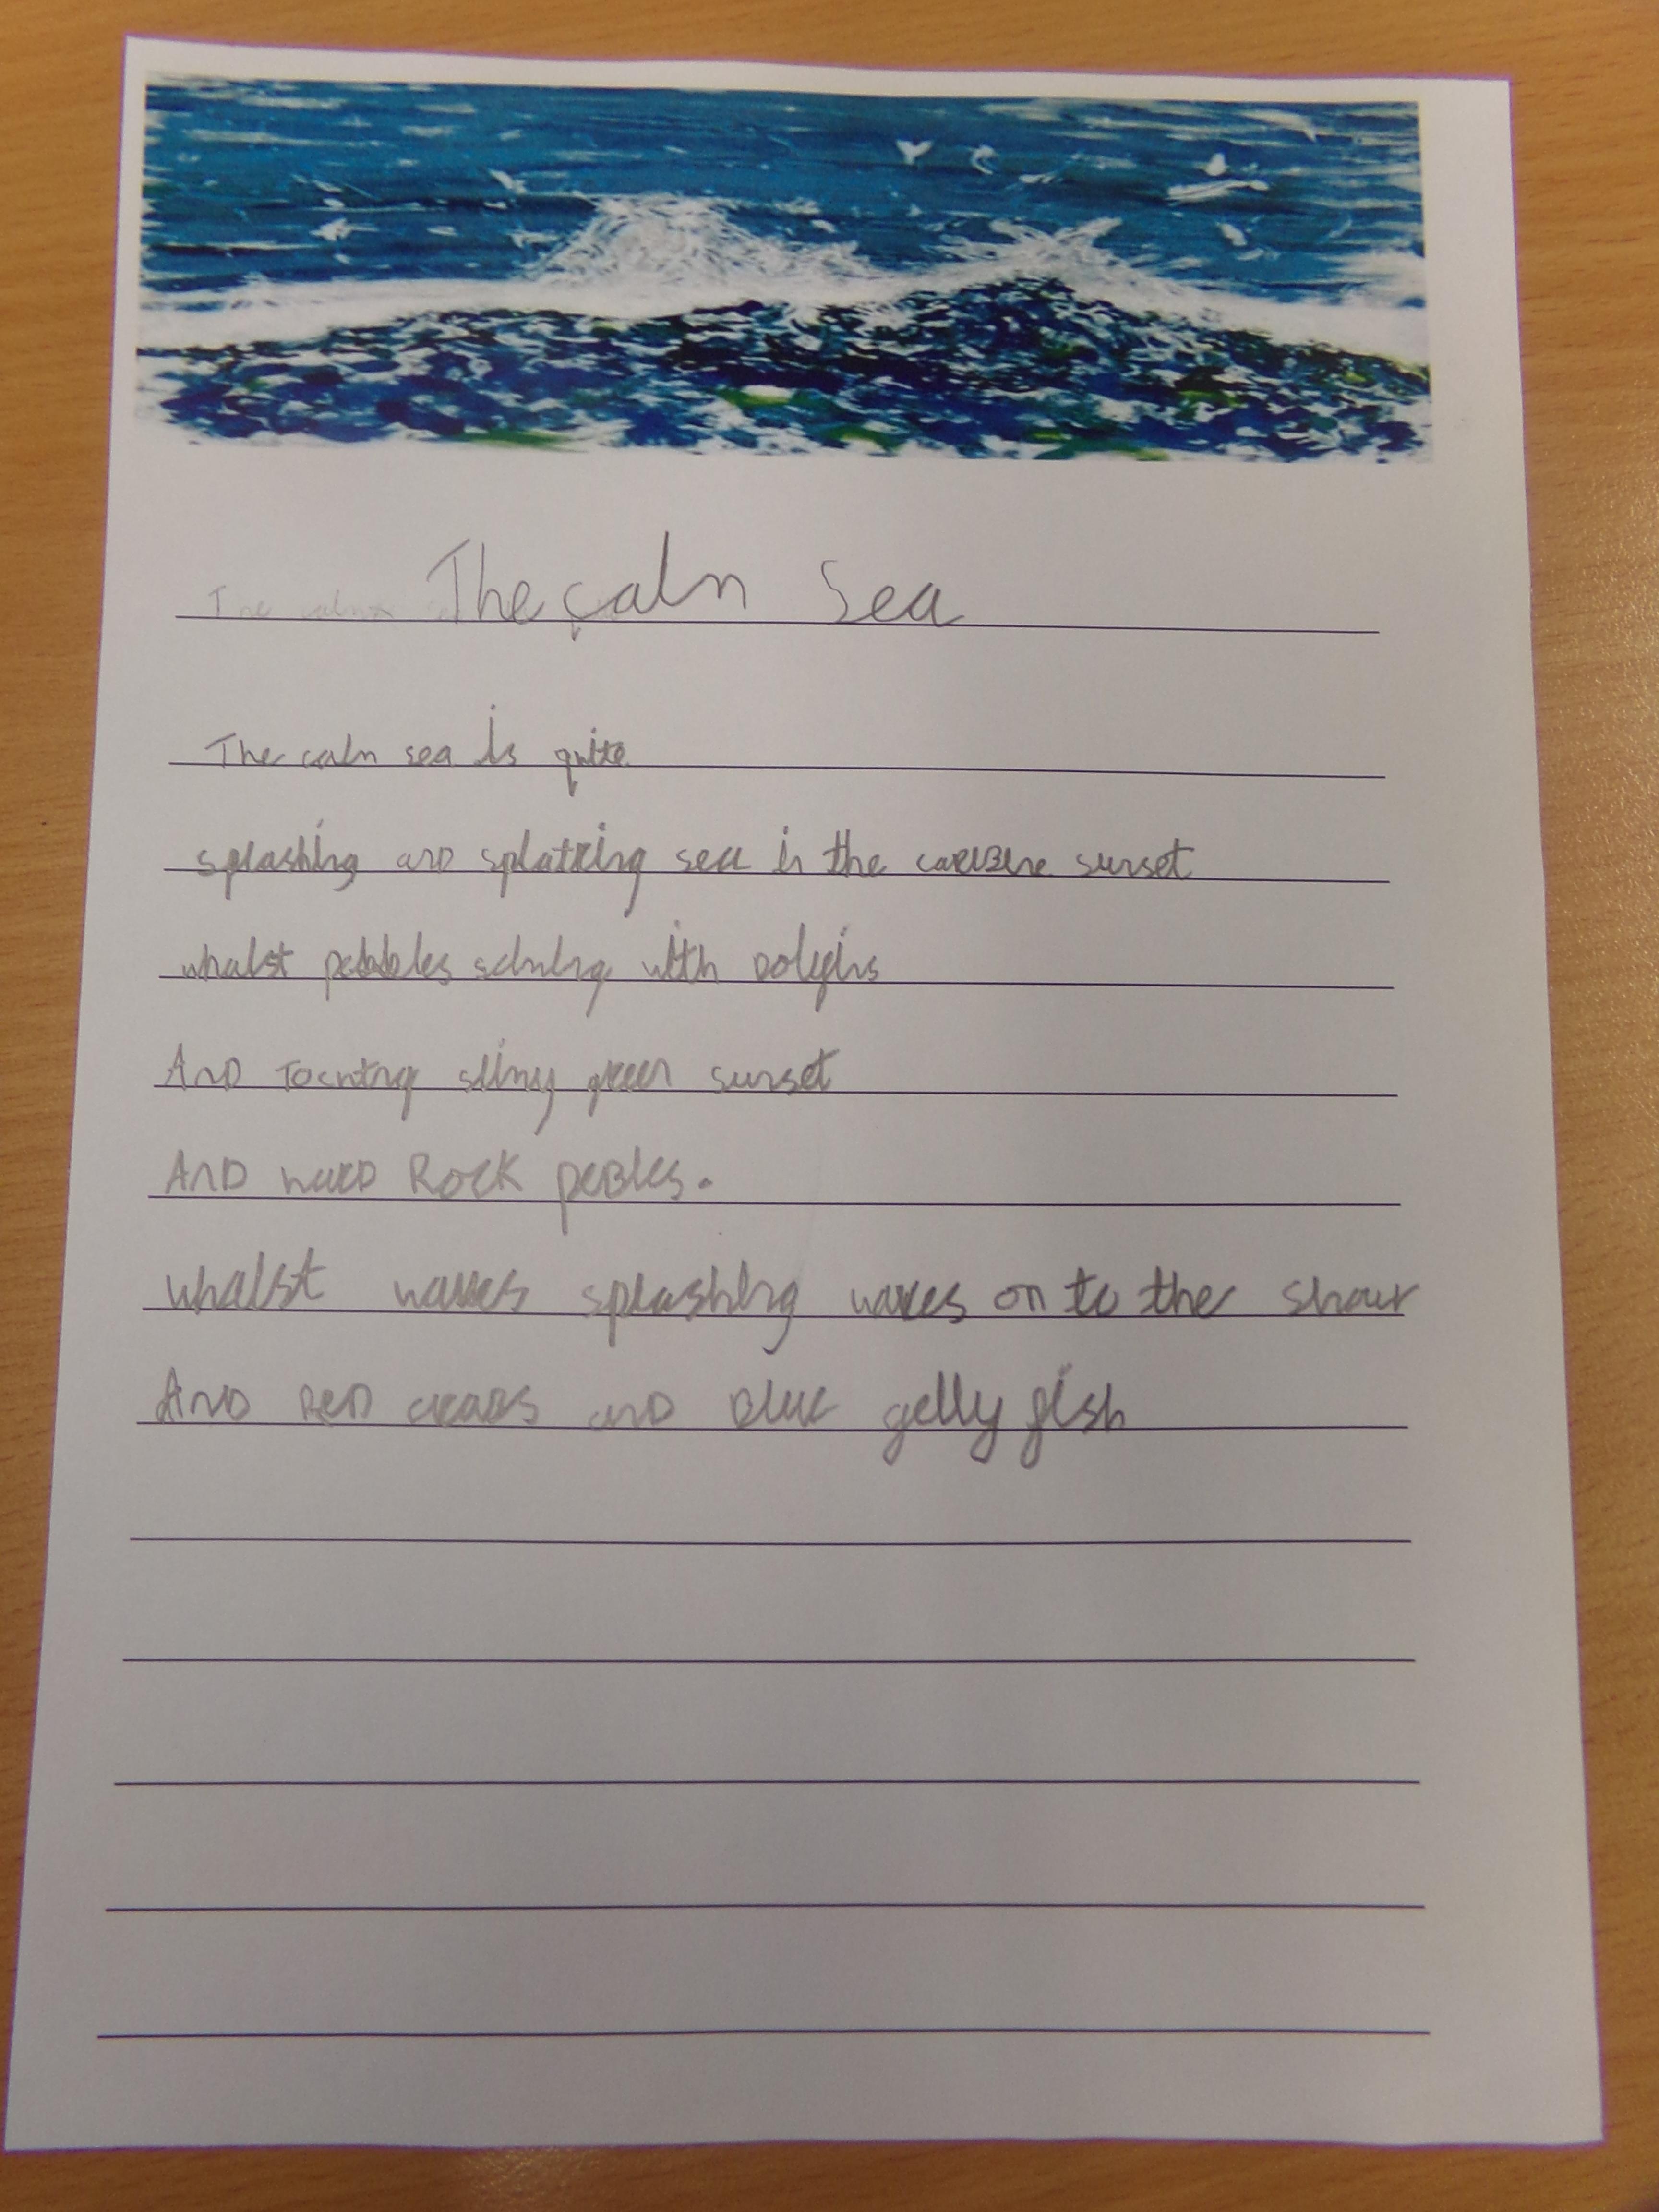 The caln Sea
The caln sea is quite
splashing and splatting sea in the sunset
whalst pebbles with
And slimy green sunset
And Rock pebles.
whalst waves splashing waves on to the shour
And Red crabs and blue gelly fish